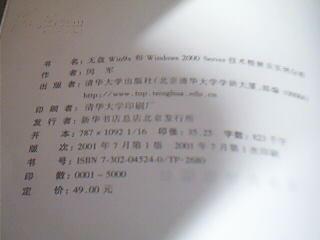 书 名：无盘 Win9x 和 Windows 2000 Server 技术
作 者：闵 军
出 版 者：清华大学出版社（北京清华大学学研大厦，邮编 100084）
http://www.tup.tsinghua.edu.cn
印 刷 者：清华大学印刷厂
发 行 者：新华书店总店北京发行所
开 本：787×1092 1/16 印张：35.25 字数：823 千字
版 次：2001 年 7 月第 1 版 2001 年 7 月第 1 次印刷
书 号：ISBN 7-302-04524-0/TP·2680
印 数：0001~5000
定 价：49.00 元